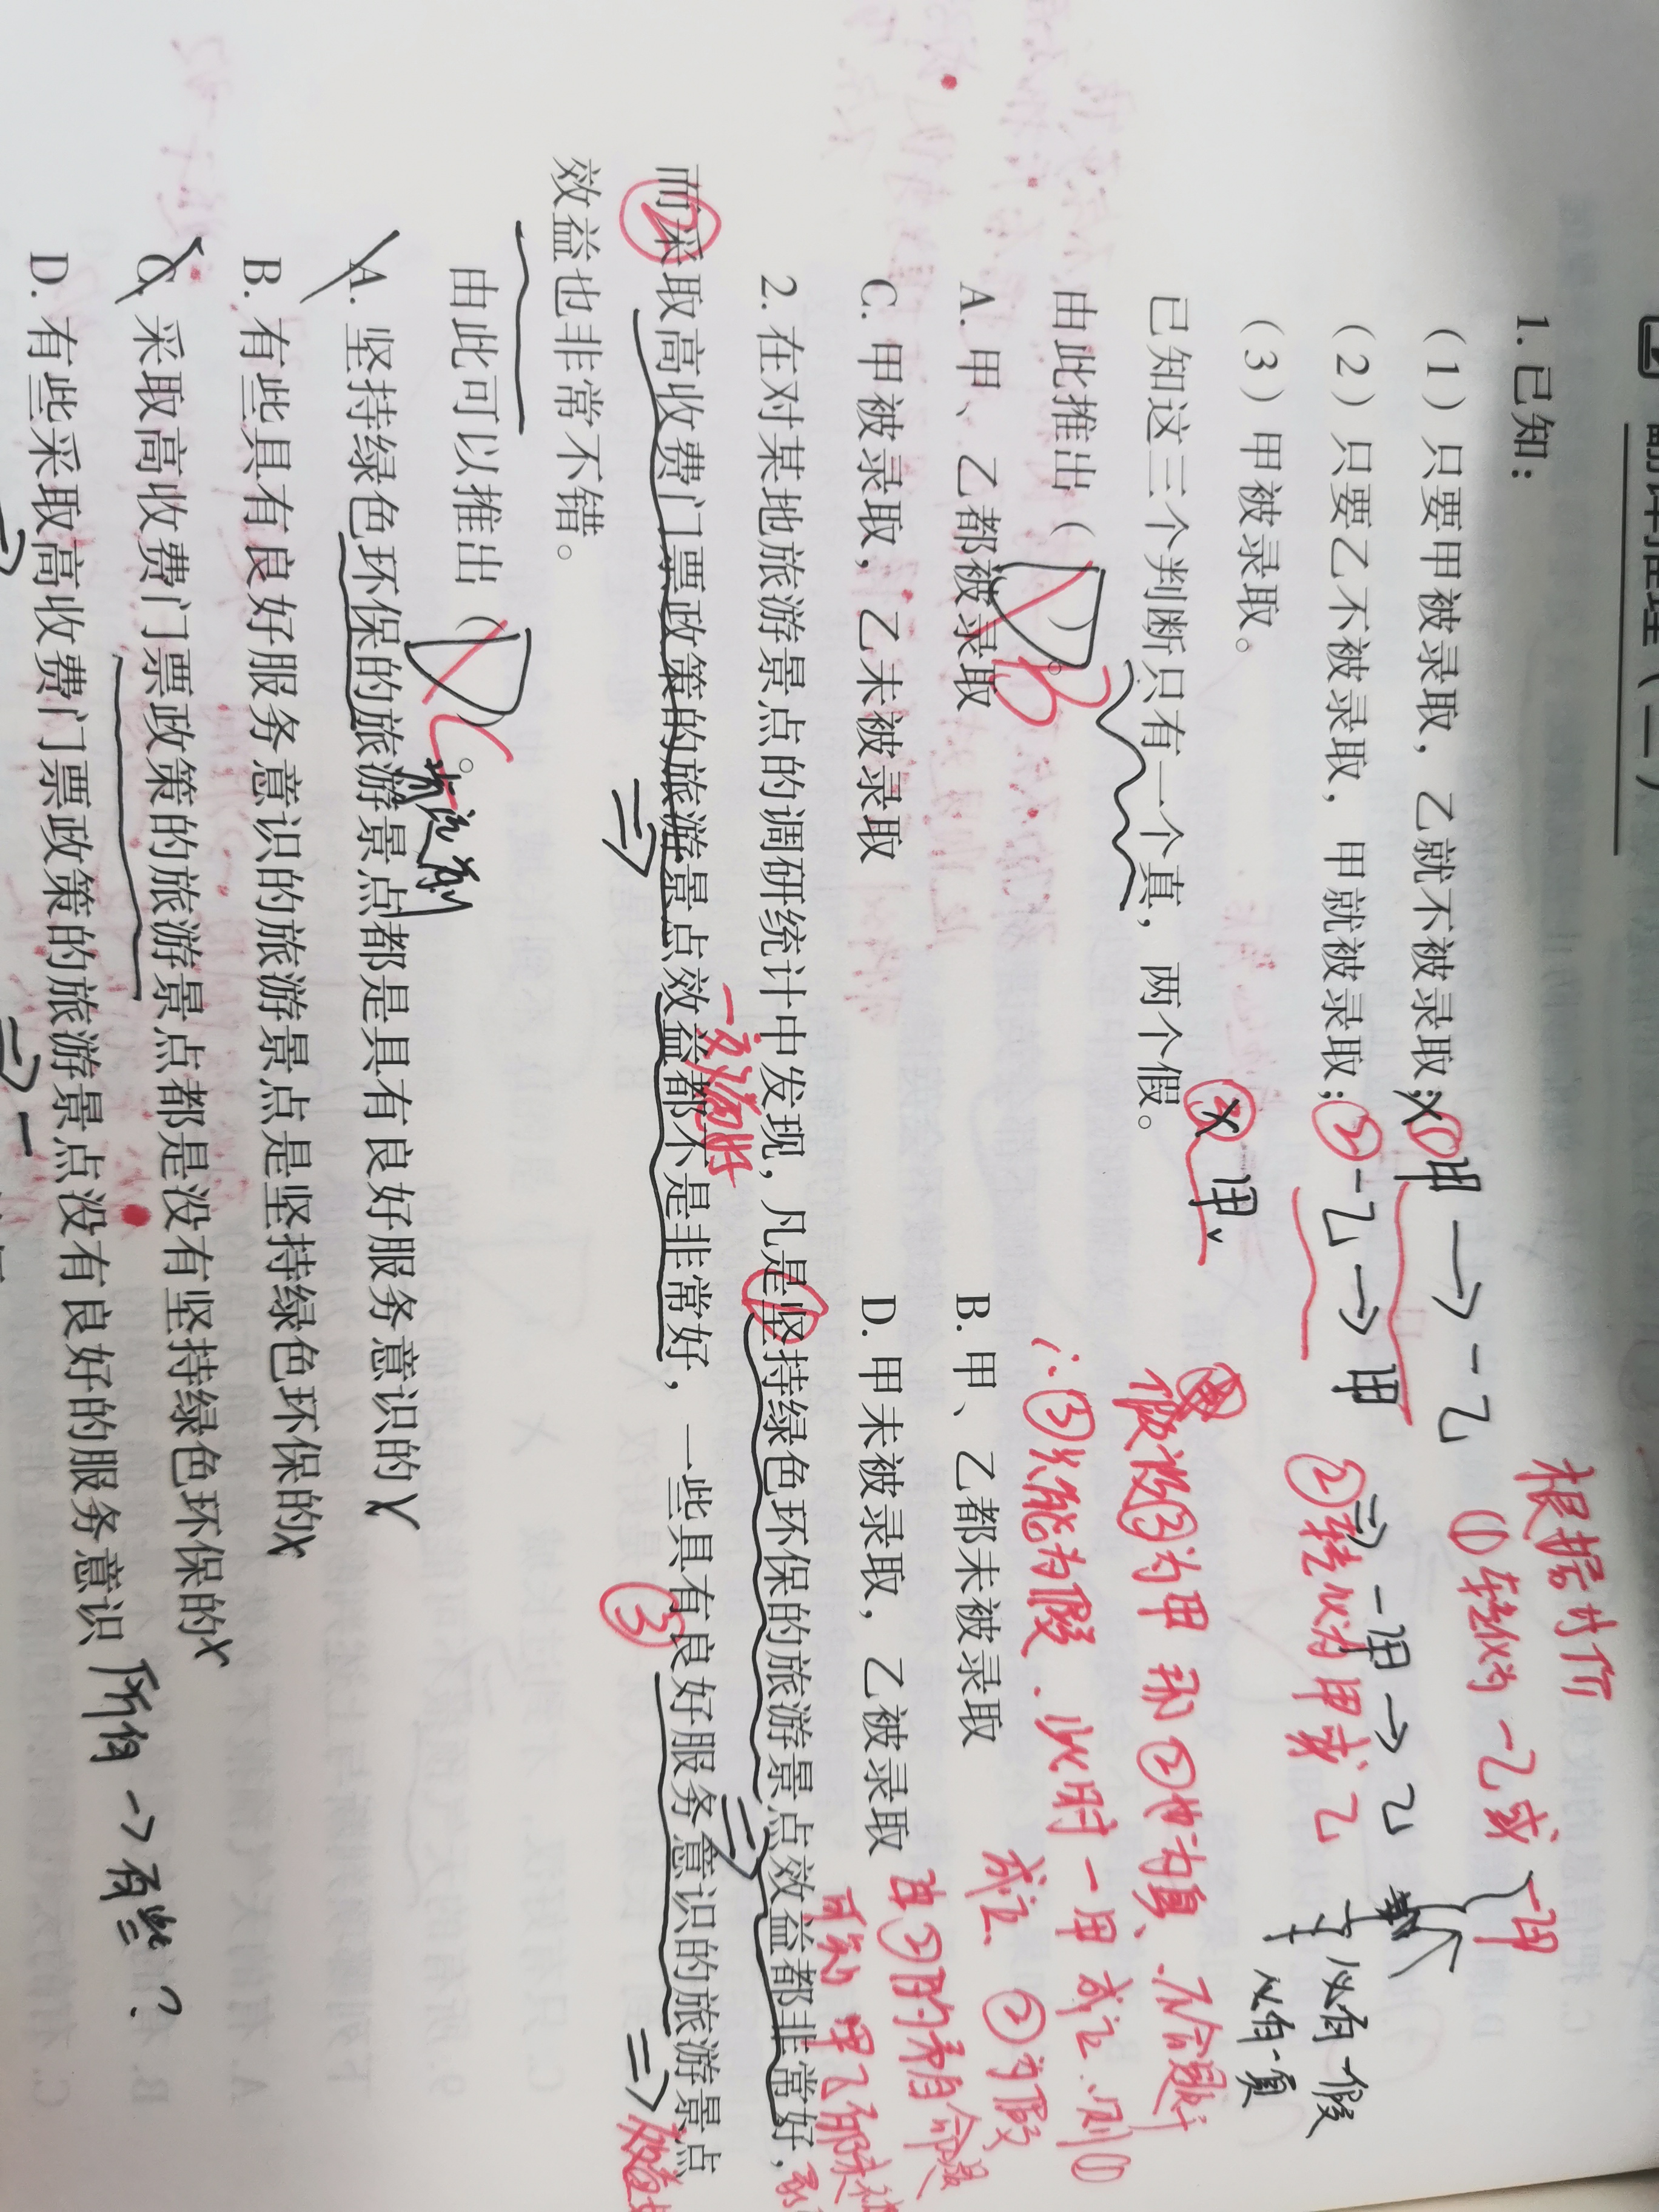 翻译推理（二）
1. 已知：
（1）只要甲被录取，乙就不被录取；
① 甲 → -乙
根据对价
①转化为 -乙或 -甲
（2）只要乙不被录取，甲就被录取；
② -乙 → 甲
⇒ -甲 → 乙
②转化为甲或乙
必有一假
必有一真
（3）甲被录取。
③ 甲
已知这三个判断只有一个真，两个假。
假设③为甲 那②也为真、不合题
由此推出（ ）。
B
∴③只能为假、此时-甲成立、则①
成立、②为假
A. 甲、乙都被录取
B. 甲、乙都未被录取
由②的矛盾命题
C. 甲被录取，乙未被录取
D. 甲未被录取，乙被录取
可知 甲乙都未被
2. 在对某地旅游景点的调研统计中发现，凡是坚持绿色环保的旅游景点效益都非常好，
①
而采取高收费门票政策的旅游景点效益都不是非常好，一些具有良好服务意识的旅游景点
②
③
效益也非常不错。
由此可以推出（ ）。
C
A. 坚持绿色环保的旅游景点都是具有良好服务意识的
B. 有些具有良好服务意识的旅游景点是坚持绿色环保的
C. 采取高收费门票政策的旅游景点都是没有坚持绿色环保的
D. 有些采取高收费门票政策的旅游景点没有良好的服务意识
所有 → 有些？